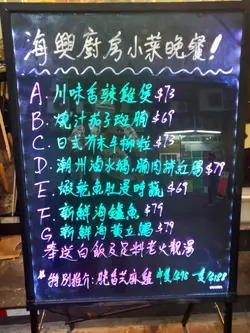 海興廚房小菜晚餐!
A. 川味香辣雞煲 $73
B. 燒汁茄子斑腩 $69
C. 日式芥末牛柳粒 $73
D. 潮州滷水鵝、腩肉拼豆腐 $79
E. 椒鹽魚肚浸時蔬 $69
F. 新鮮海鱸魚 $79
G. 新鮮海黃立鯧 $79
奉送白飯及足料老火靚湯
*特別推介: 脆香芝麻雞 半隻$98 一隻$188